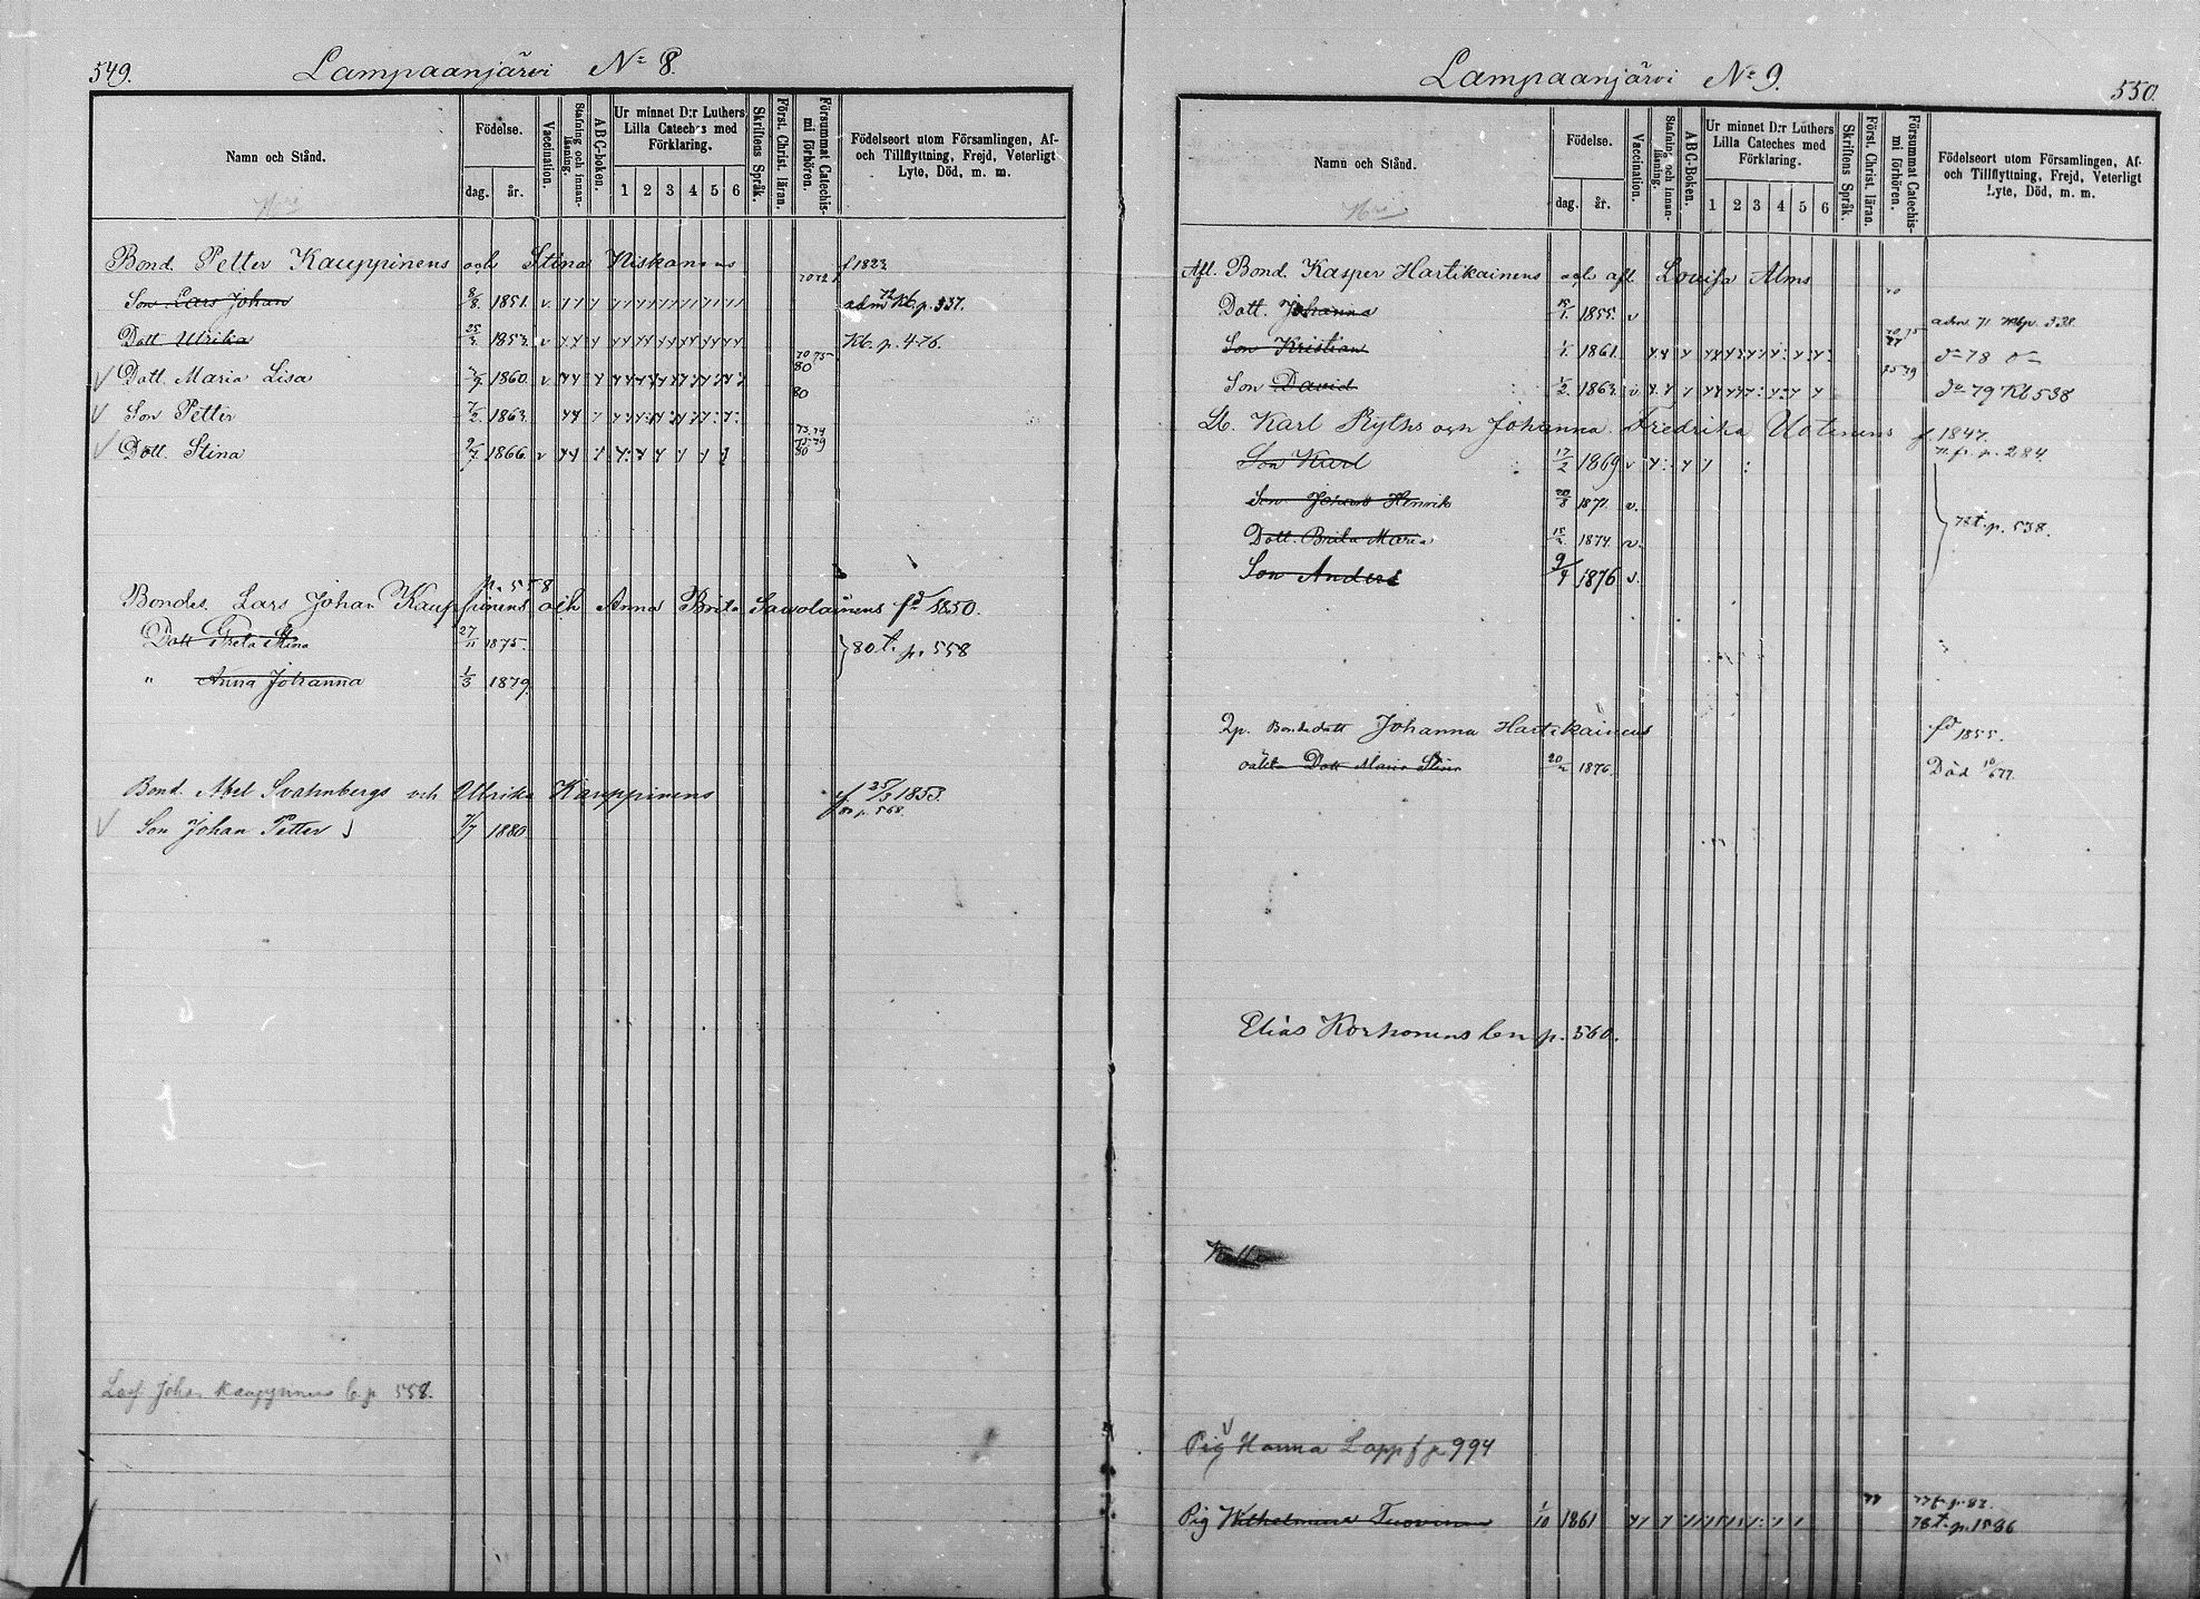 549.
Lampaanjärvi No 8.
Namn och Stånd.
Födelse.
dag.
år.
Vaccination.
Stafning och innanläsning.
ABC-boken.
Ur minnet D:r Luthers Lilla Cateches med Förklaring.
1 2 3 4 5 6
Skriftens Språk.
Först. Christ. läran.
Försummat Catechismi förhören.
Födelseort utom Församlingen, Af- och Tillflyttning, Frejd, Veterligt Lyte, Död, m. m.
Bond. Petter Kauppinens och Stina Niskanens f 1822
Son Lars Johan 8/8 1851. v. adm 72 Kb. p. 337.
Dott Ulrika 25/3 1853. v Kb. p. 476.
Dott. Maria Lisa 1860. v 70 75 80
Son Petter 7/2 1863. 80
Dott. Stina 1866. v 80
p. 558
Bondes. Lars Johan Kauppinens och Anna Brita Sawolainens fd 1850.
Dott Greta Stina 27/11 1875. 80 t. p. 558
" Anna Johanna 1/3 1879
Bond. Abel Svahnbergs och Ulrika Kauppinens f 25/3 1853.
Son Johan Petter 1880
Johan Kauppinens b. p 558.
550.
Lampaanjärvi No 9.
Namn och Stånd.
Födelse.
dag.
år.
Vaccination.
Stafning och innanläsning.
ABC-Boken.
Ur minnet D:r Luthers Lilla Cateches med Förklaring.
1 2 3 4 5 6
Skriftens Språk.
Först. Christ. läran.
Försummat Catechismi förhören.
Födelseort utom Församlingen, Af- och Tillflyttning, Frejd, Veterligt Lyte, Död, m. m.
Afl. Bond. Kasper Hartikainens och afl. Lovisa Alms
Dott. Johanna 1855. v adm 71 538.
Son Kristian 1/1 1861. 78
Son David 1/2 1863. v 79 Kb 538
Karl Ryths och Johanna Fredrika Uotinens f. 1847.
fr. p. 284.
Son Karl 17/2 1869 v
Son Johan Henrik 20/8 1871. v.
78 t. p. 538.
Dott. Brita Maria 1874. v.
Son Anders 9/4 1876 v.
Bondedott Johanna Hartikainens fd 1855.
oäkt Dott Maria Stina 1876. Död 10/6 77.
Elias Korhonens p. 560.
Pig Hanna Lapp f p 994
77 f. p. 82.
Pig Wilhelmina Tuovinen 1/10 1861 78 t. p. 1586